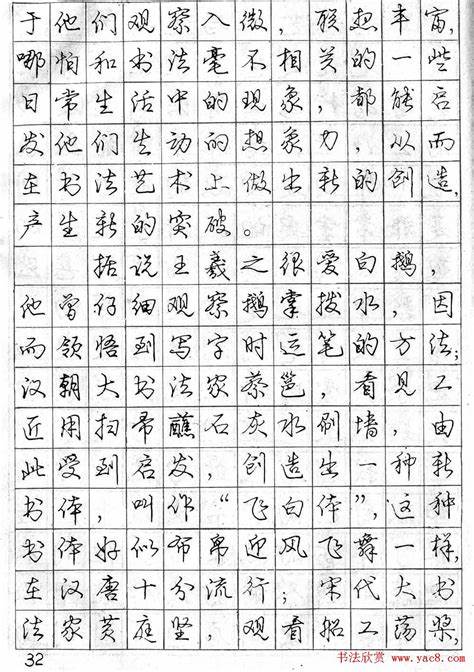 于他们观察入微，联想丰富，
哪怕和书法毫不相关的一些
日常生活中的现象，都能启
发他们生动的想象力，从而
在书法艺术上做出新的创造，
产生新的突破。
据说王羲之很爱白鹅，
他曾仔细观察鹅掌拨水，因
而领悟到写字时运笔的方法；
汉朝大书法家蔡邕，看见工
近用扫帚蘸石灰水刷墙，由
此受到启发，创造出一种新
书体，叫作“飞白体”，这种
书体好似布帛迎风飞舞一样，
在汉唐十分流行；宋代大书
法家黄庭坚，观看船工荡桨，
32
书法欣赏
www.yac8.com